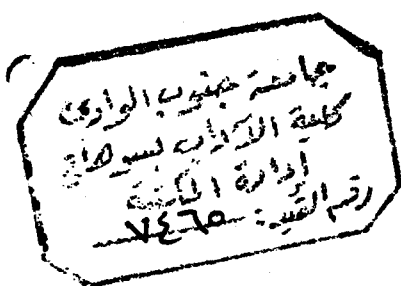 جامعة جنوب الوادى
كلية الآداب بسوهاج
إدارة المكتبة
رقم القيد: ٧٤٦٥